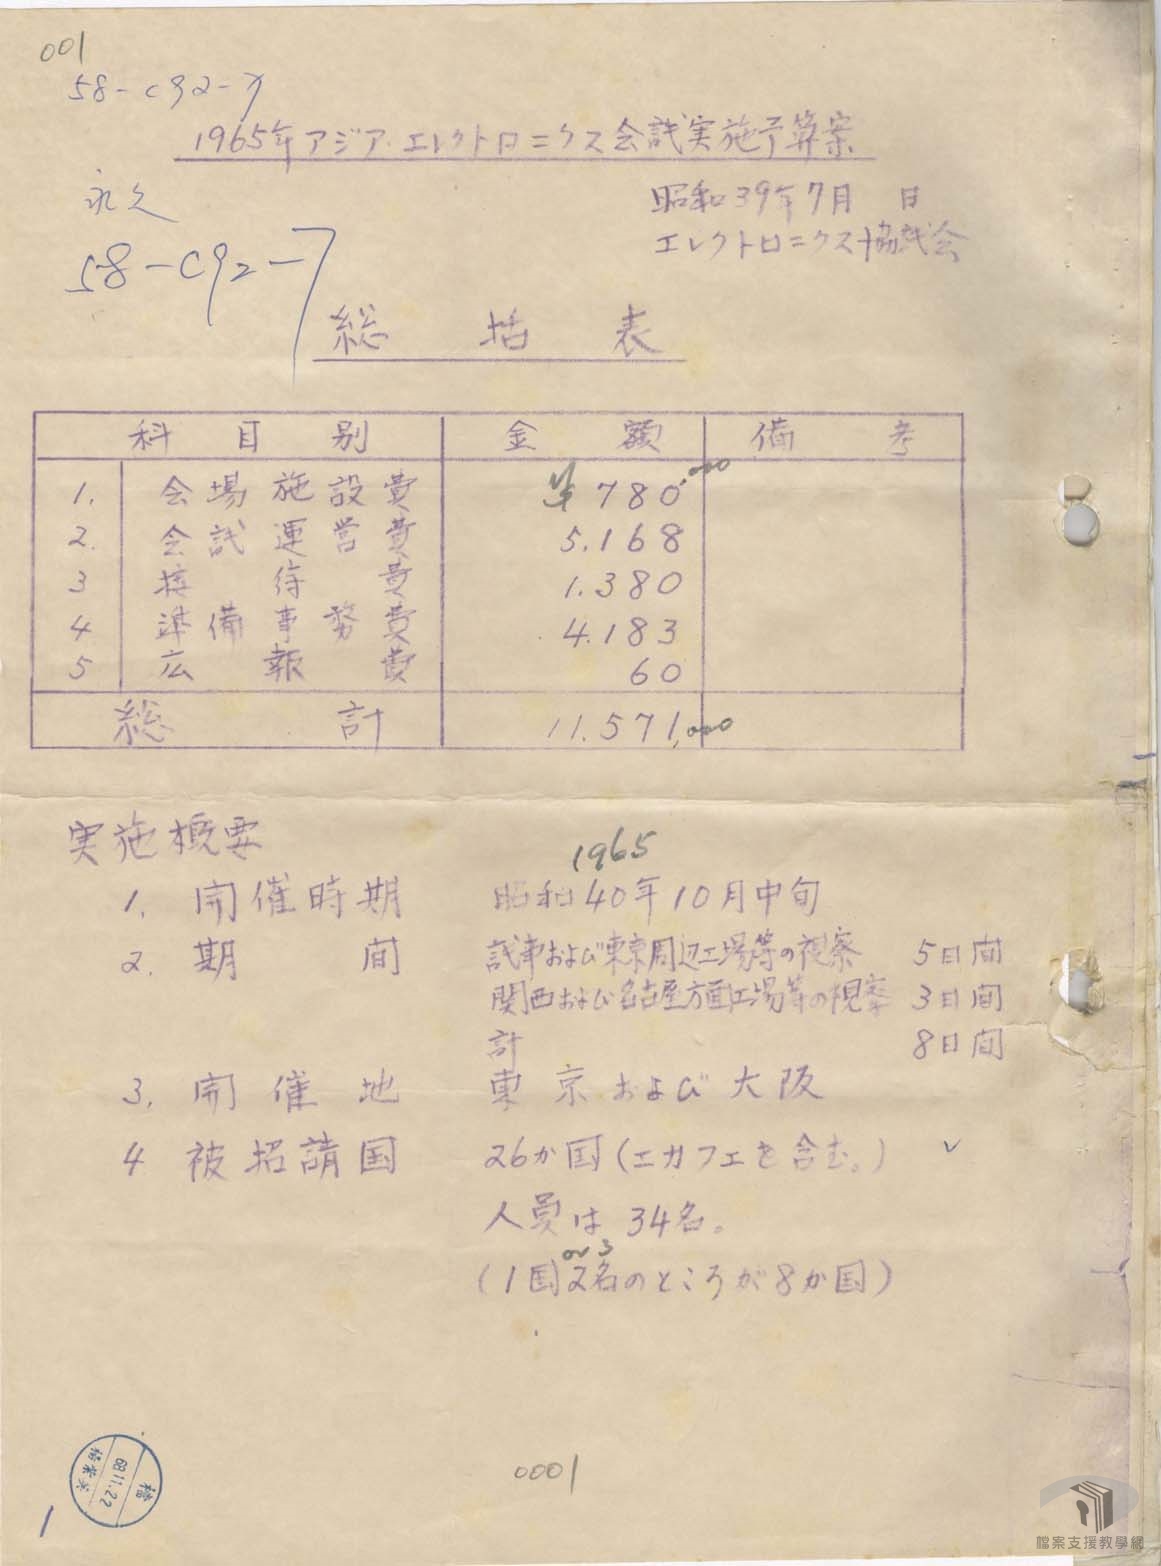 001
58-C92-7
1965年アジア.エレクトロニクス会議実施予算案
永久
昭和39年7月 日
58-C92-7
エレクトロニクス協議会
総 括 表
科 目 別 金 額 備 考
1. 会場施設費 ¥780,000
2. 会議運営費 5.168
3 接待費 1.380
4 準備事務費 4.183
5 広報費 60
総 計 11.571,000
実施概要
1965
1. 開催時期 昭和40年10月中旬
2. 期 間 議事および東京周辺工場等の視察 5日間
関西および名古屋方面工場等の視察 3日間
計 8日間
3. 開催地 東京および大阪
4 被招請国 26か国(エカフェを含む。) ✓
人員は 34名。
or 3
(1国2名のところが8か国)
68.11.22
0001
1
檔案支援教學網